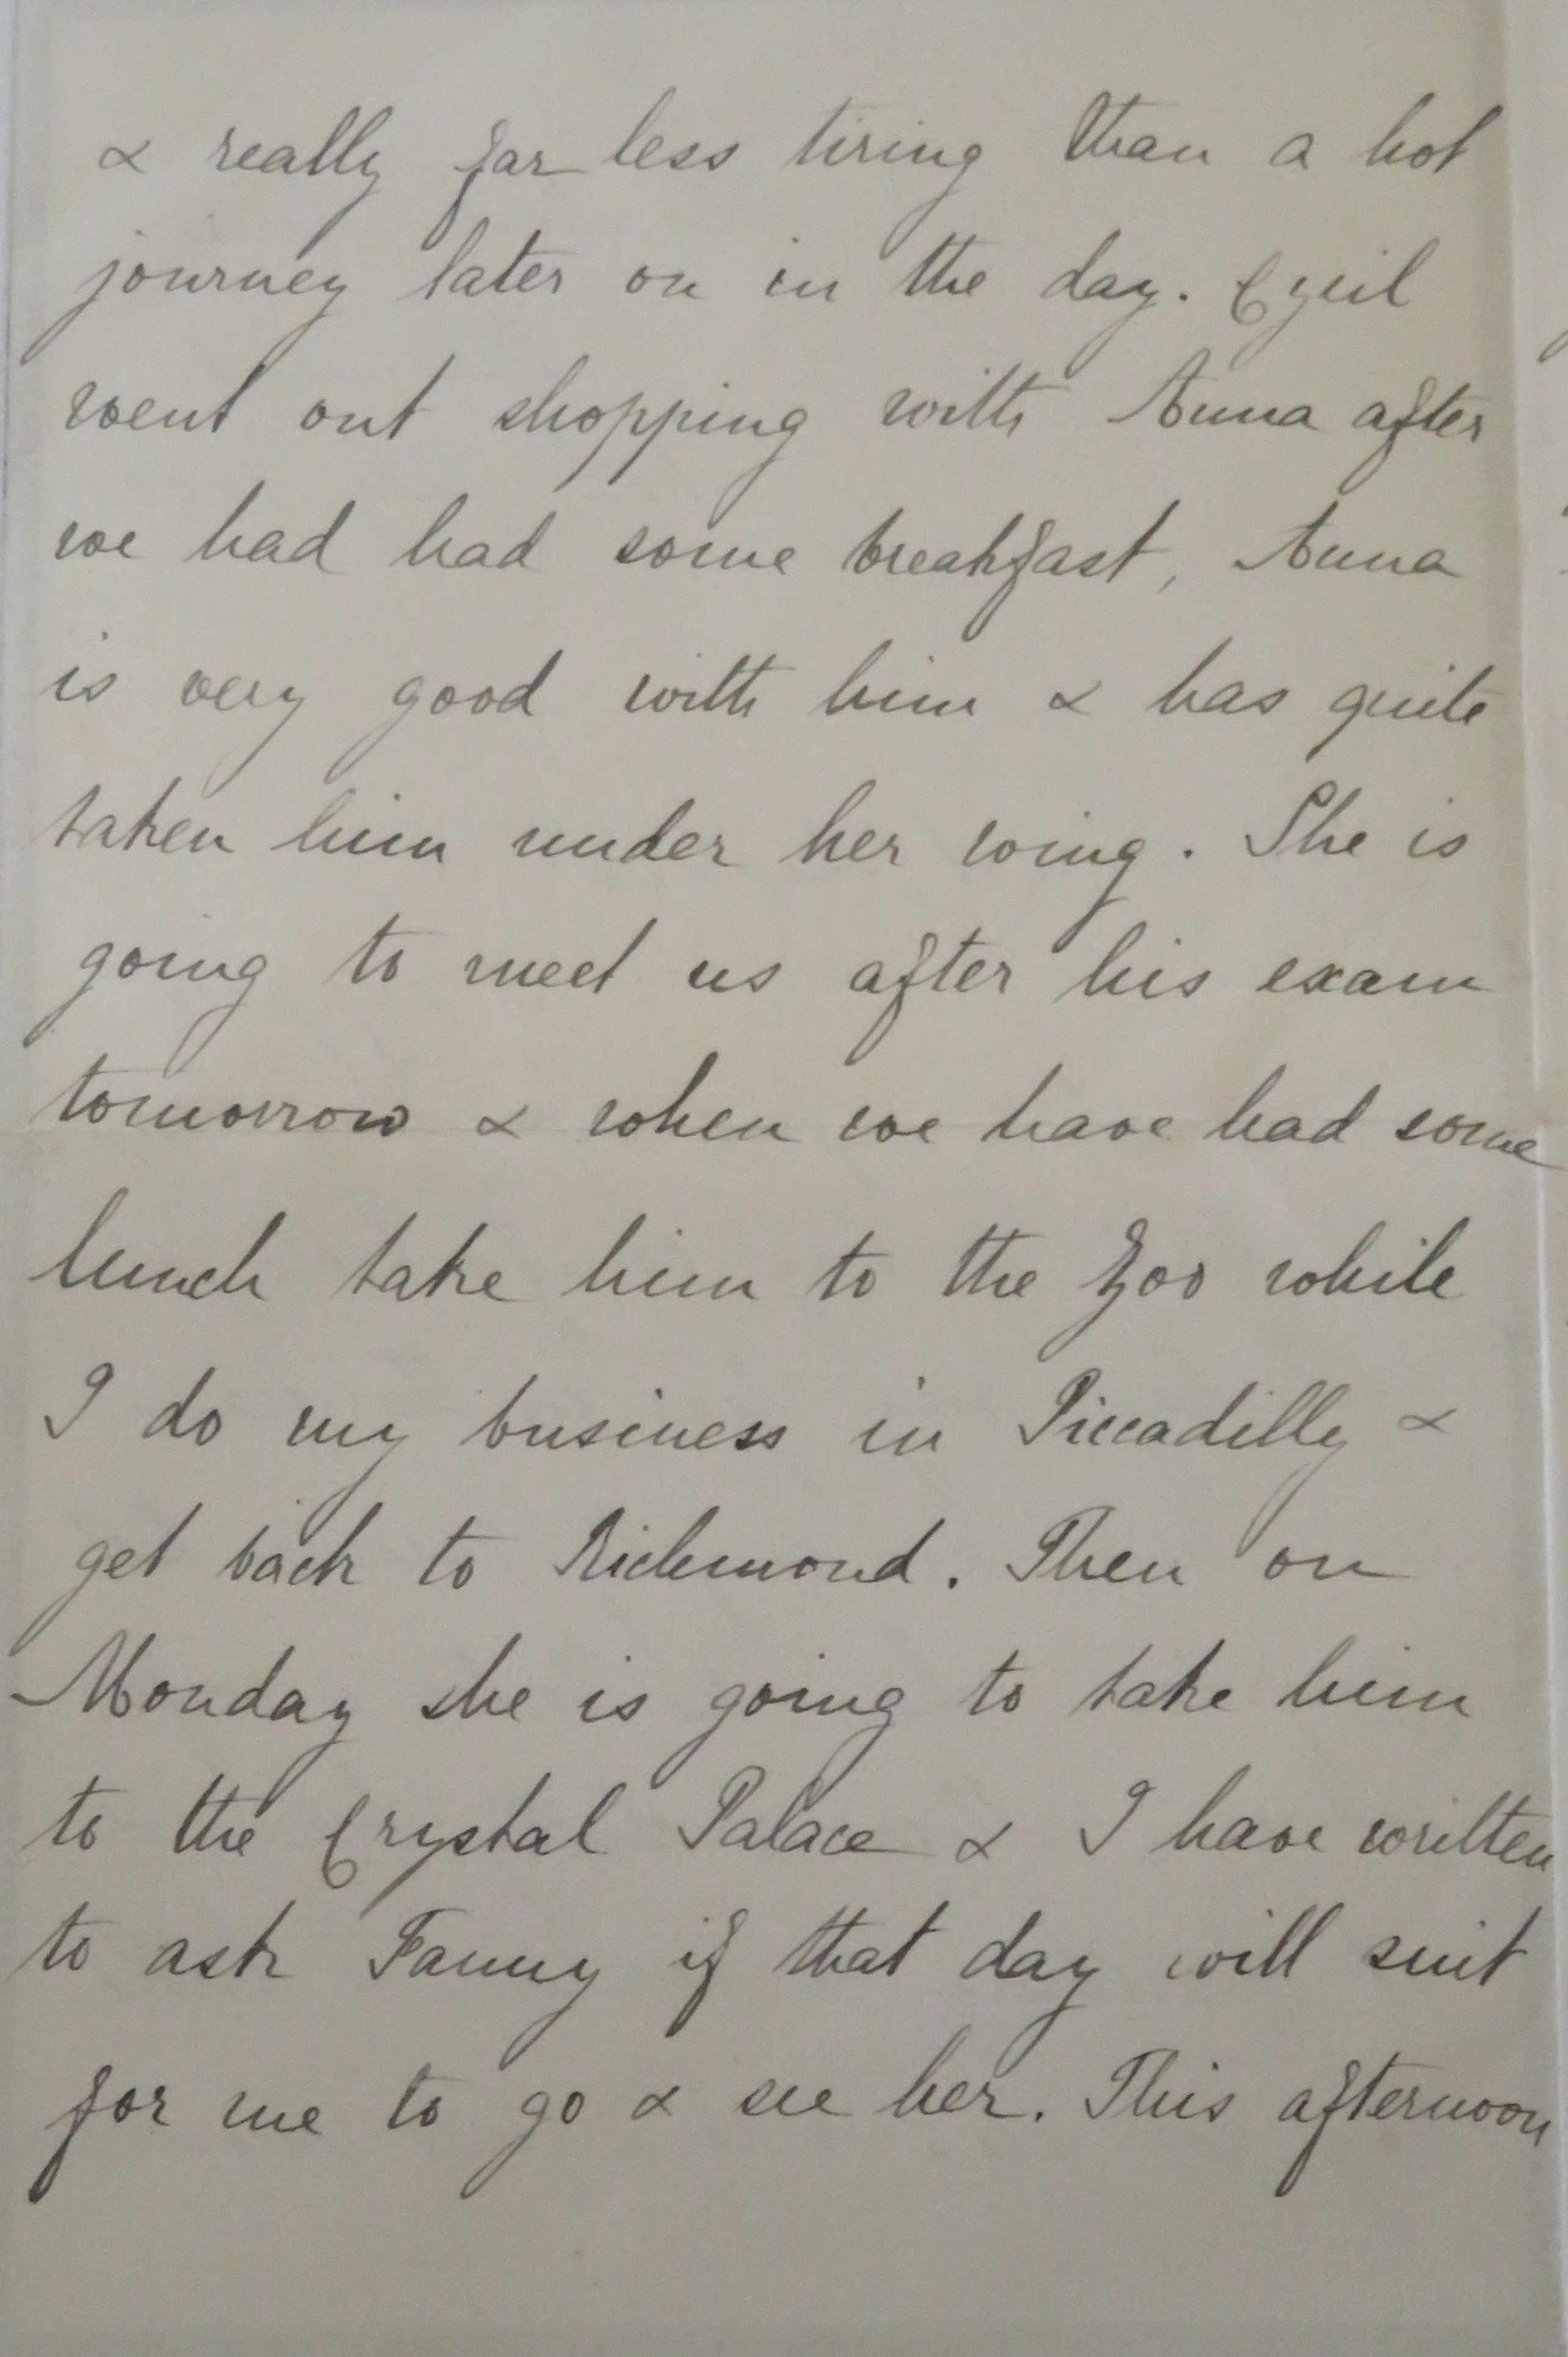 & really far less tiring than a hot
journey later on in the day. Cyril
went out shopping with Anna after
we had had some breakfast, Anna
is very good with him & has quite
taken him under her wing. She is
going to meet us after his exam
tomorrow & when we have had some
lunch take him to the Zoo while
I do my business in Piccadilly &
get back to Richmond. Then on
Monday she is going to take him
to the Crystal Palace & I have written
to ask Fanny if that day will suit
for me to go & see her. This afternoon